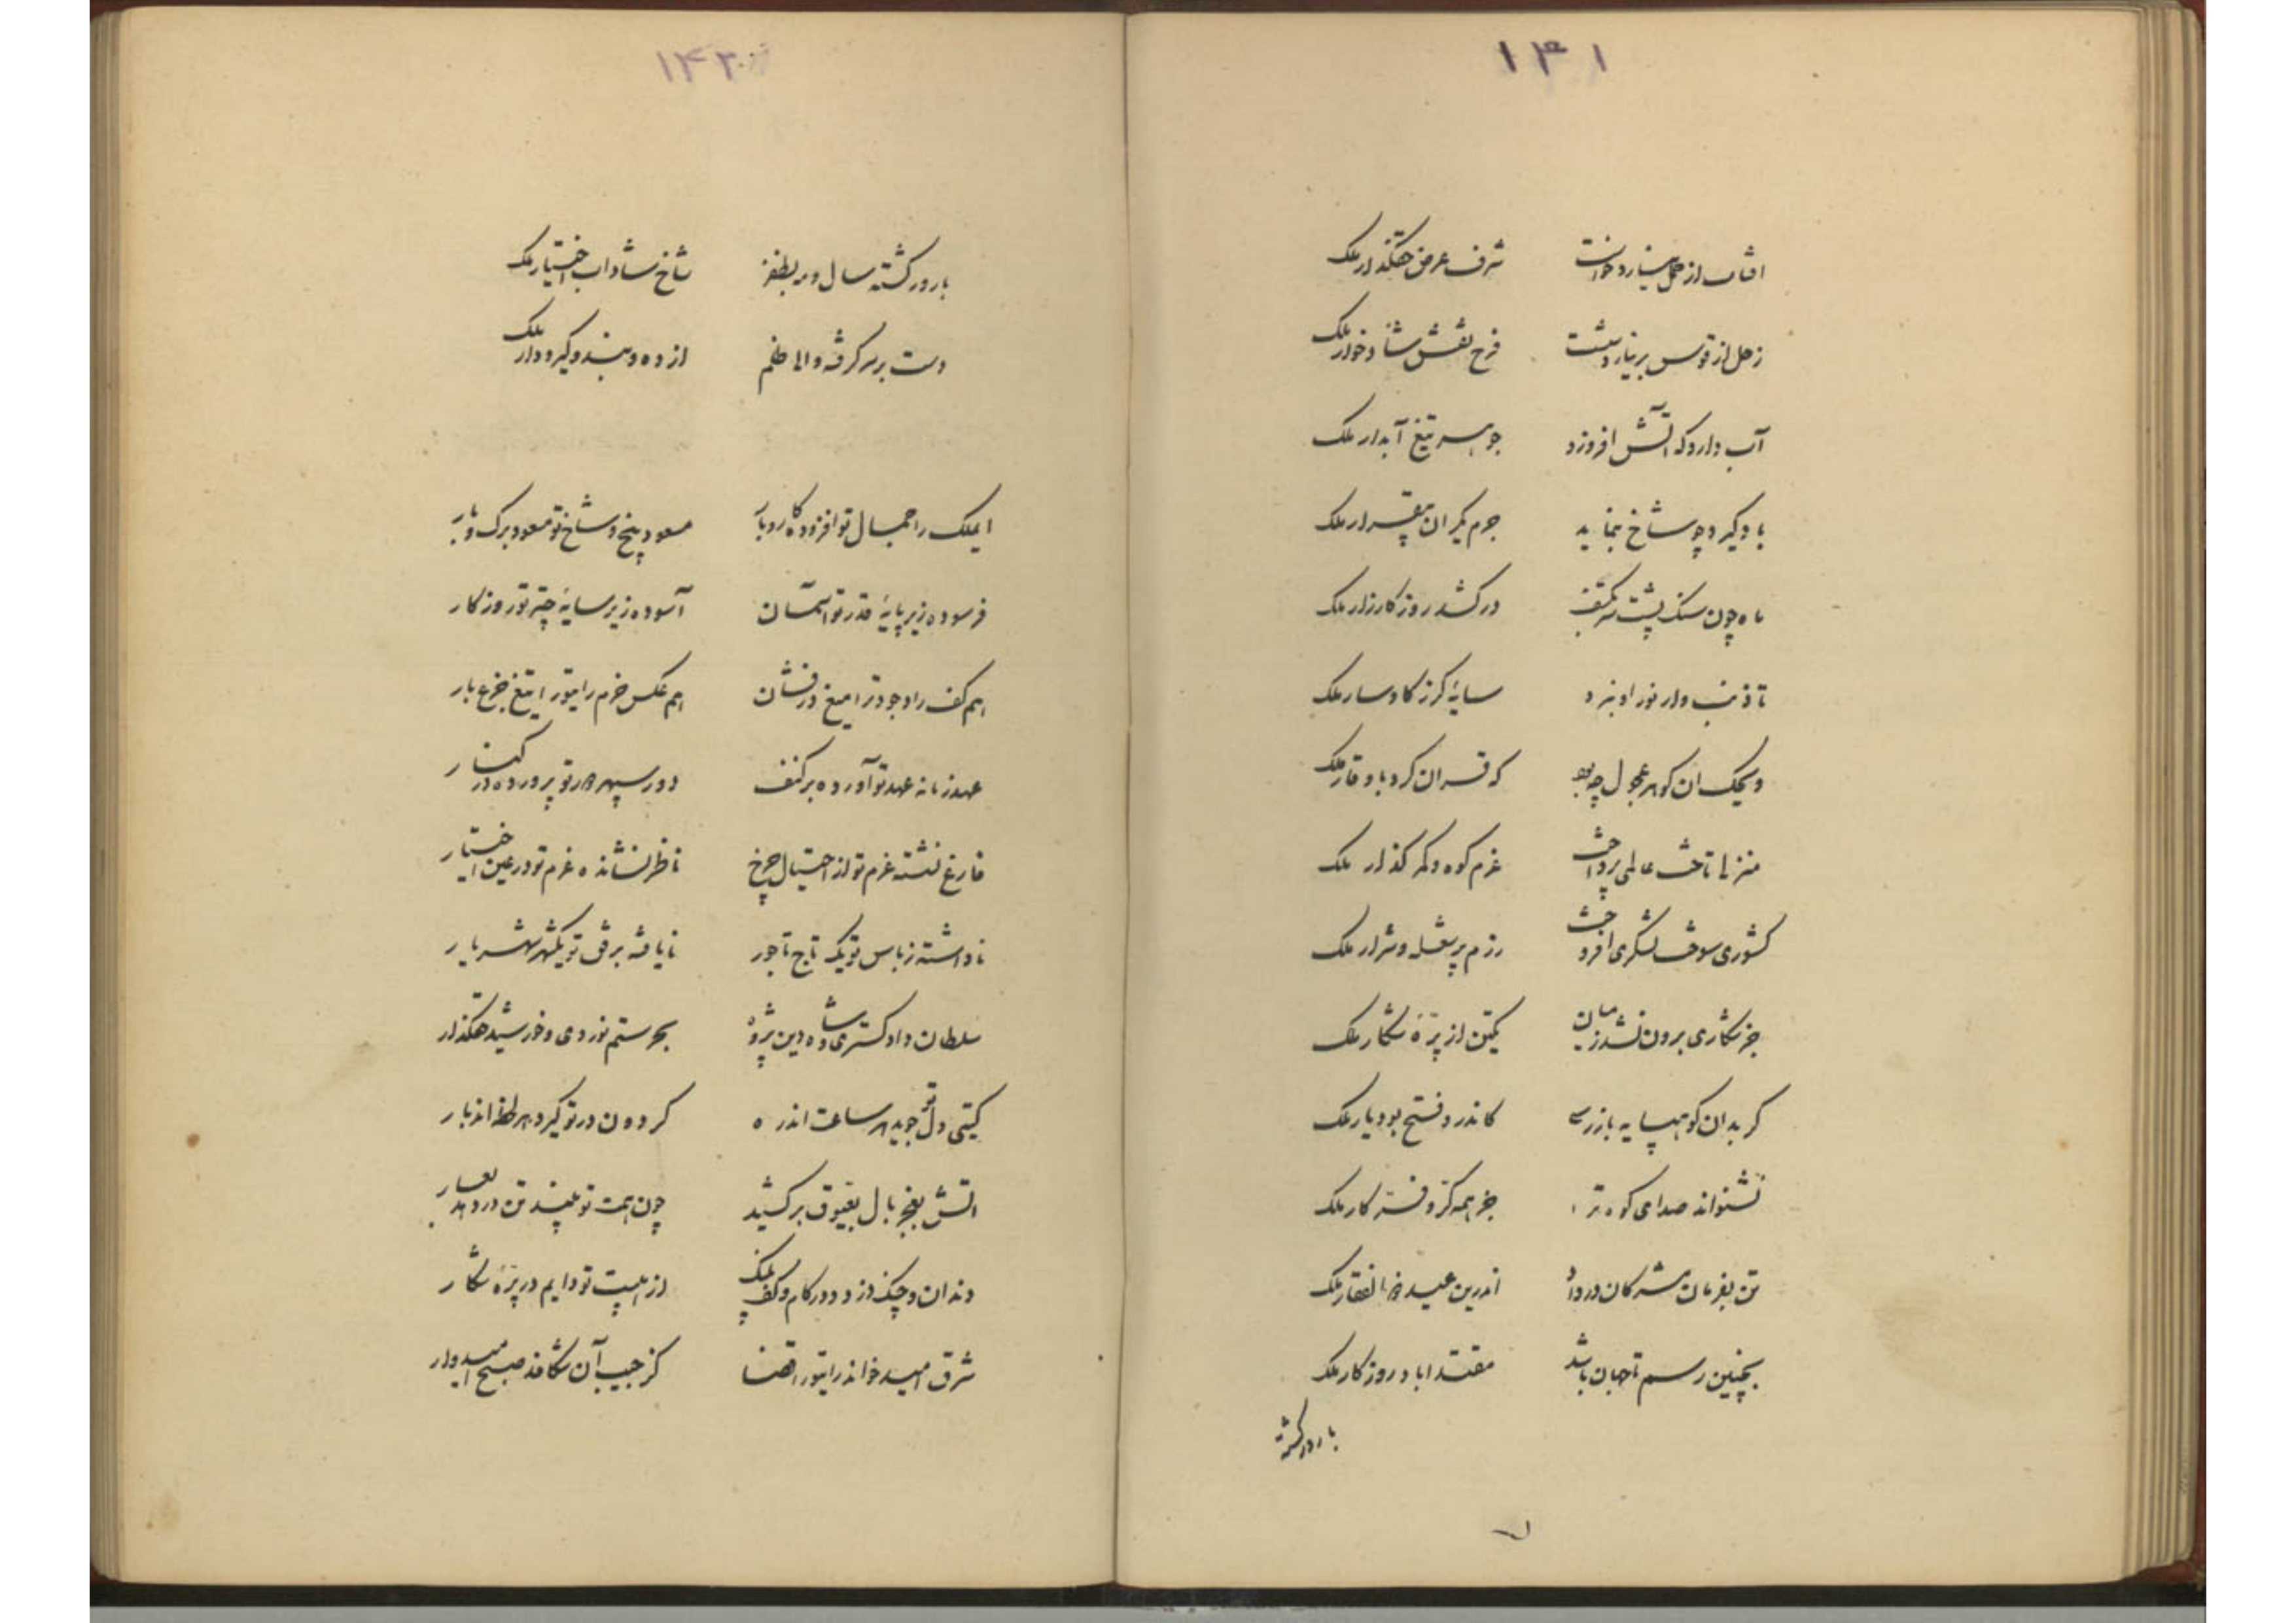 ۱۳۱
افتاب از حمل نیارد خواست شرف عرض حقگذار ملک
زحل از قوس بر نیارد گشت فرح نقش شادخوار ملک
آب دارد که آتش افروزد جوهر تیغ آبدار ملک
باد گیرد چو شاخ بنماید جرم یکران بیقرار ملک
ماه چون سنگ پشت سر بکتف درکشد روز کارزار ملک
تا ذنب وار نور او نبرد سایهٔ کرز کاوسار ملک
ویحک ان کوه عجول چه بود که قران کرد با وقار ملک
منزلی تاخت عالمی پرداخت عزم کوه و کمر کذار ملک
کشوری سوخت لشکری افروخت رزم پر شعله و شرار ملک
جز شکاری برون نشد ز میان یکتن از پرّهٔ شکار ملک
کر بدان کوهپایه باز رسی کاندرو فتح بود یار ملک
نشنواند صدای کوه ترا جز همه کرّ و فرّ کار ملک
تن بفرمان مشرکان در داد اندرین عید ذوالفقار ملک
بچنین رسم تا جهان باشد مقتدا باد روزکار ملک
بارور کشته
۱۳۲
بارور کشته سال و مه بظفر شاخ شاداب اختیار ملک
دست بر سر کرفته والی ظلم از ده و بند و کیر و دار ملک
ایملک را جمال تو افزوده کاروبار مسعود بیخ و شاخ تو مسعود برک و بار
فرسوده زیر پایهٔ قدر تو اسمان آسوده زیر سایهٔ چتر تو روزکار
هم کف راد جود ترا میغ درفشان هم عکس خرم رای تو را تیغ جزع بار
عهد زمانه عهد تو آورده بر کنف دور سپهر دور تو پرورده در کنار
فارغ نشسته عزم تو از احتیال چرخ ناظر نشانده عزم تو در عین اختیار
ناداشته ز باس تو یک تاج تاجور نایافته برق تو یکشهر شهریار
سلطان دادکستری و شاه دین پژوه بحر ستم نوردی و خورشید حقگذار
کیتی دل تو جوید هر ساعت اندره کردون در تو کیرد هر لحظه اندبار
اتش بفخر بال بعیوق بر کشید چون همت تو بیند تن در دهد بعار
دندان و چنک دزدد در کام و کف پلنک از هیبت تو دایم در پرّهٔ شکار
شرق امید خواند رای تو را قضا کز جیب آن شکافد صبح امیدوار